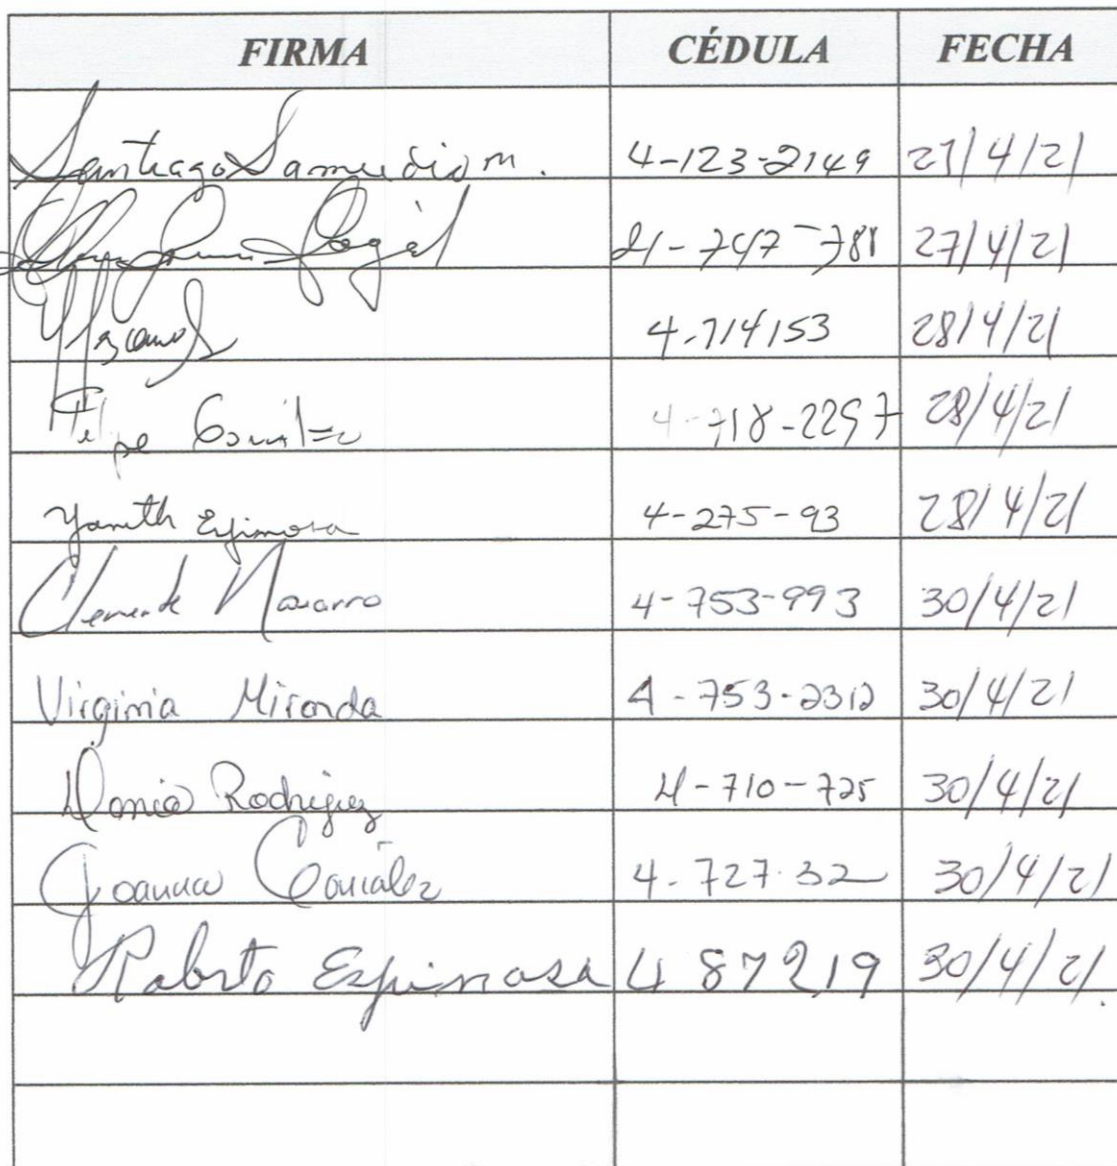 FIRMA CÉDULA FECHA
Santiago Samudio m. 4-123-2149 27/4/21
4-747-781 27/4/21
4-714153 28/4/21
Felipe 4-718-2297 28/4/21
Yamith Espinosa 4-275-93 28/4/21
Clemente Navarro 4-753-993 30/4/21
Virginia Miranda 4-753-2312 30/4/21
Rodriguez 4-710-725 30/4/21
Joanna González 4-727-32 30/4/21
Roberto Espinosa 4 87219 30/4/21